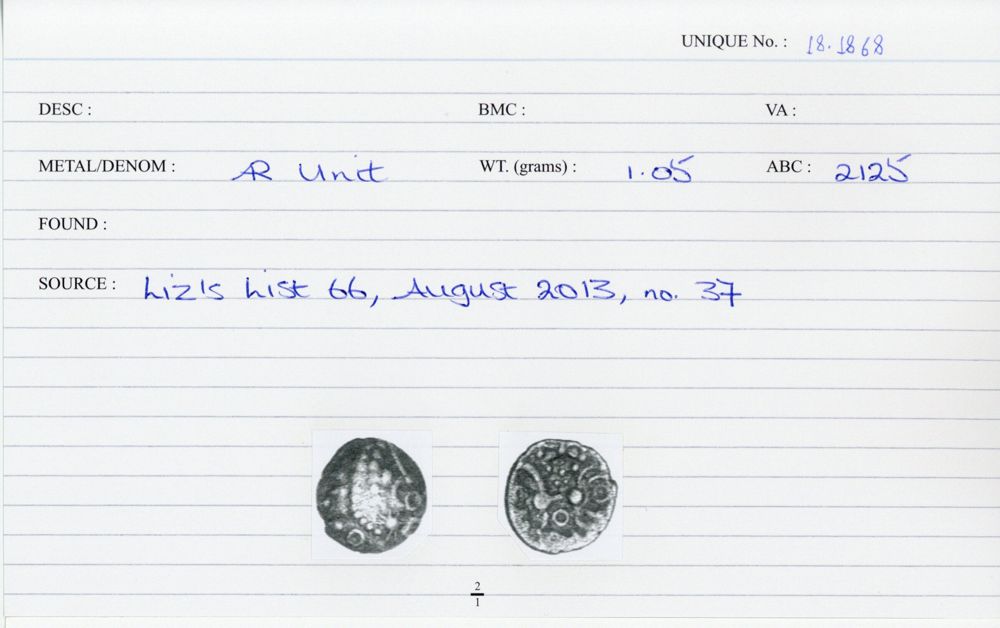 UNIQUE No. : 18.1868
DESC : BMC : VA :
METAL/DENOM : AR Unit WT. (grams) : 1.05 ABC : 2125
FOUND :
SOURCE : Liz's List 66, August 2013, no. 37
2
1